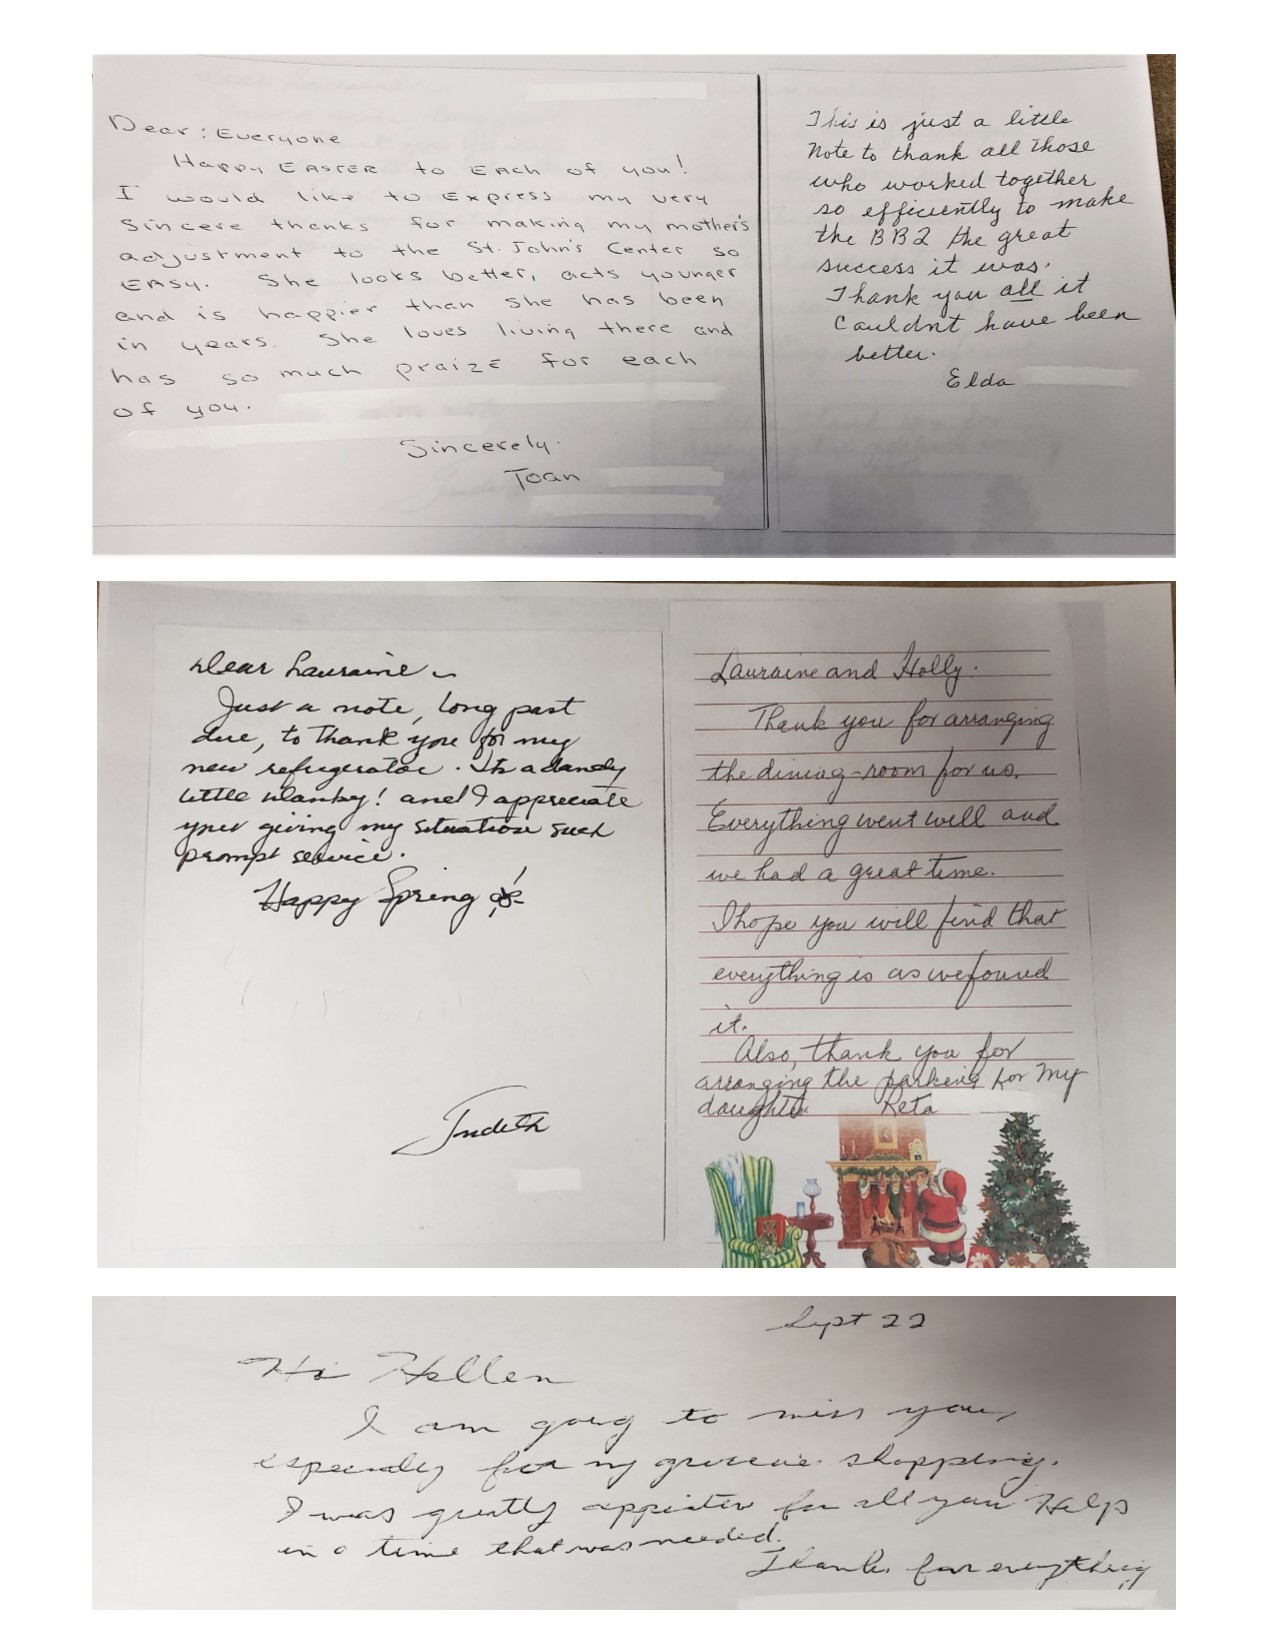 Dear: Everyone
Happy EASTER to EACh of you!
I would like to Express my very
Sincere thanks for making my mother's
adjustment to the St. John's Center so
EASy. She looks better, acts younger
and is happier than she has been
in years. She loves living there and
has so much praizE for each
of you.
Sincerely.
Joan
This is just a little
Note to thank all those
who worked together
so efficiently to make
the BB2 the great
success it was.
Thank you all it
Couldnt have been
better.
Elda
Dear Lauraine ~
Just a note, long past
due, to thank you for my
new refrigerator. Its a dandy
little
! and I appreciate
your giving my situation such
prompt service.
Happy Spring!
Judith
Lauraine and Holly.
Thank you for arranging
the dining-room for us.
Everything went well and
we had a great time.
I hope you will find that
everything is as we found
it.
Also, thank you for
arranging the parking for my
daughter Reta
Sept 22
Hi Hellen
I am going to miss you,
especially for my shopping.
I was greatly for all your Helps
in a time that was needed.
Thanks for everything